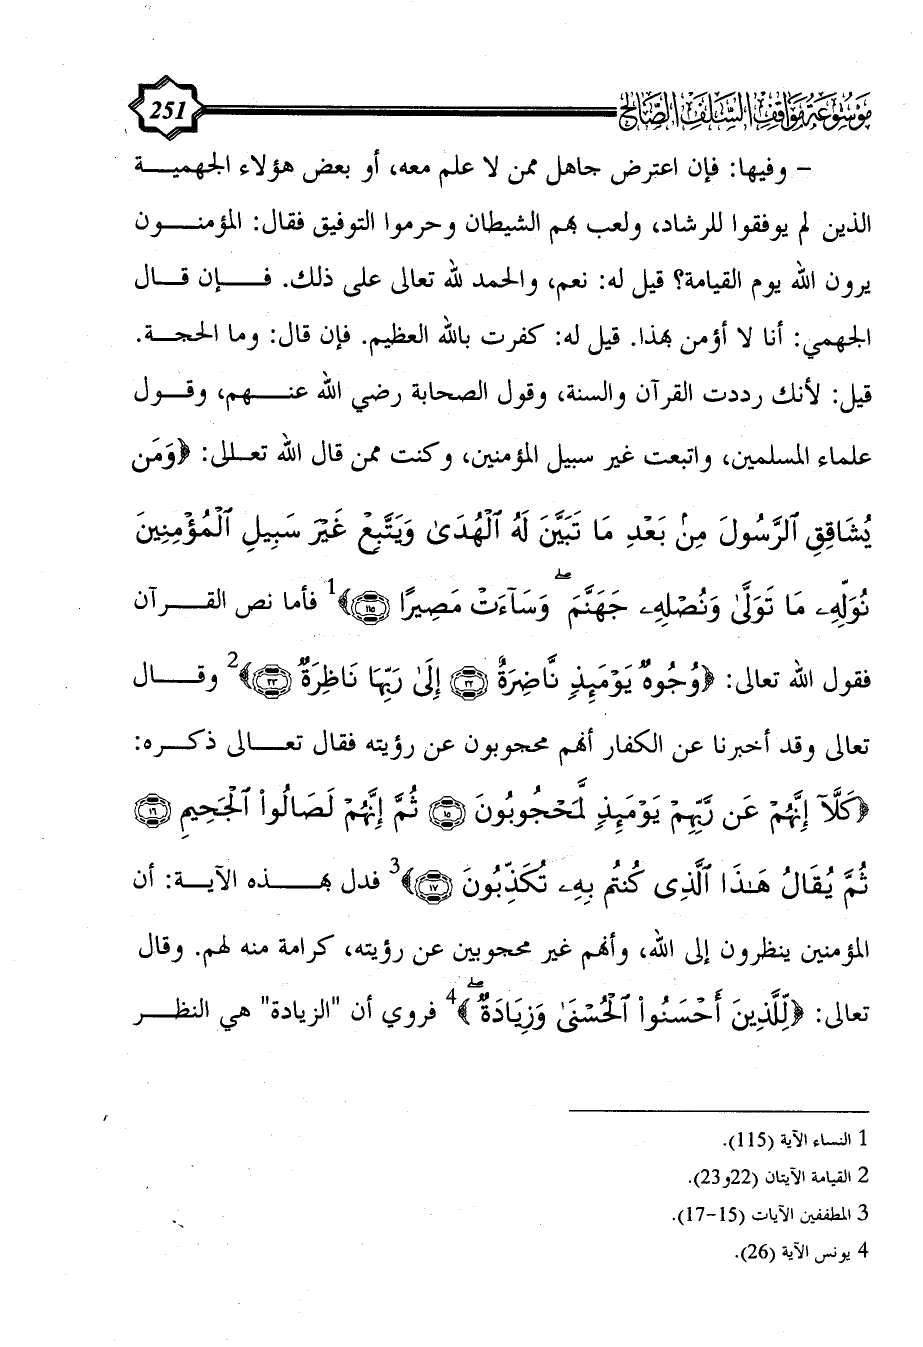 موسوعة مواقف السلف الصالح 251
– وفيها: فإن اعترض جاهل ممن لا علم معه، أو بعض هؤلاء الجهميـــة
الذين لم يوفقوا للرشاد، ولعب بهم الشيطان وحرموا التوفيق فقال: المؤمنـــون
يرون الله يوم القيامة؟ قيل له: نعم، والحمد لله تعالى على ذلك. فـــإن قـــال
الجهمي: أنا لا أؤمن بهذا. قيل له: كفرت بالله العظيم. فإن قال: وما الحجـــة.
قيل: لأنك رددت القرآن والسنة، وقول الصحابة رضي الله عنـــهم، وقـــول
علماء المسلمين، واتبعت غير سبيل المؤمنين، وكنت ممن قال الله تعـــالى: ﴿وَمَن
يُشَاقِقِ ٱلرَّسُولَ مِنۢ بَعْدِ مَا تَبَيَّنَ لَهُ ٱلْهُدَىٰ وَيَتَّبِعْ غَيْرَ سَبِيلِ ٱلْمُؤْمِنِينَ
نُوَلِّهِۦ مَا تَوَلَّىٰ وَنُصْلِهِۦ جَهَنَّمَ ۖ وَسَآءَتْ مَصِيرًا ۝١١٥﴾1 فأما نص القـــرآن
فقول الله تعالى: ﴿وُجُوهٌ يَوْمَئِذٍ نَّاضِرَةٌ ۝٢٢ إِلَىٰ رَبِّهَا نَاظِرَةٌ ۝٢٣﴾2 وقـــال
تعالى وقد أخبرنا عن الكفار أنهم محجوبون عن رؤيته فقال تعـــالى ذكـــره:
﴿كَلَّآ إِنَّهُمْ عَن رَّبِّهِمْ يَوْمَئِذٍ لَّمَحْجُوبُونَ ۝١٥ ثُمَّ إِنَّهُمْ لَصَالُوا۟ ٱلْجَحِيمِ ۝١٦
ثُمَّ يُقَالُ هَٰذَا ٱلَّذِى كُنتُم بِهِۦ تُكَذِّبُونَ ۝١٧﴾3 فدل بهـــذه الآيـــة: أن
المؤمنين ينظرون إلى الله، وأنهم غير محجوبين عن رؤيته، كرامة منه لهم. وقال
تعالى: ﴿لِّلَّذِينَ أَحْسَنُوا۟ ٱلْحُسْنَىٰ وَزِيَادَةٌ ۖ﴾4 فروي أن "الزيادة" هي النظـــر
1 النساء الآية (115).
2 القيامة الآيتان (22و23).
3 المطففين الآيات (15-17).
4 يونس الآية (26).